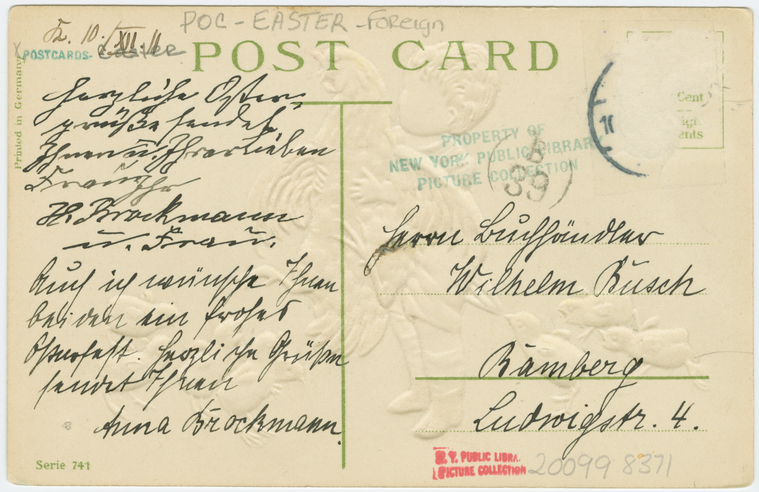 POC - EASTER - Foreign
POSTCARDS - Easter
POST CARD
Printed in Germany
Herzliche Oster-
grüße sendet
Ihnen u. Ihrer lieben
Frau Ihr
H. Brockmann
u. Frau.
Auch ich wünsche Ihnen
beiden ein frohes
Osterfest. Herzliche Grüße
sendet Ihnen
Anna Brockmann.
Serie 741
Cent
PROPERTY OF
NEW YORK PUBLIC LIBRARY
PICTURE COLLECTION
Herrn Buchhändler
Wilhelm Busch
Bamberg
Ludwigstr. 4.
N.Y. PUBLIC LIBR.
PICTURE COLLECTION
20099 8371